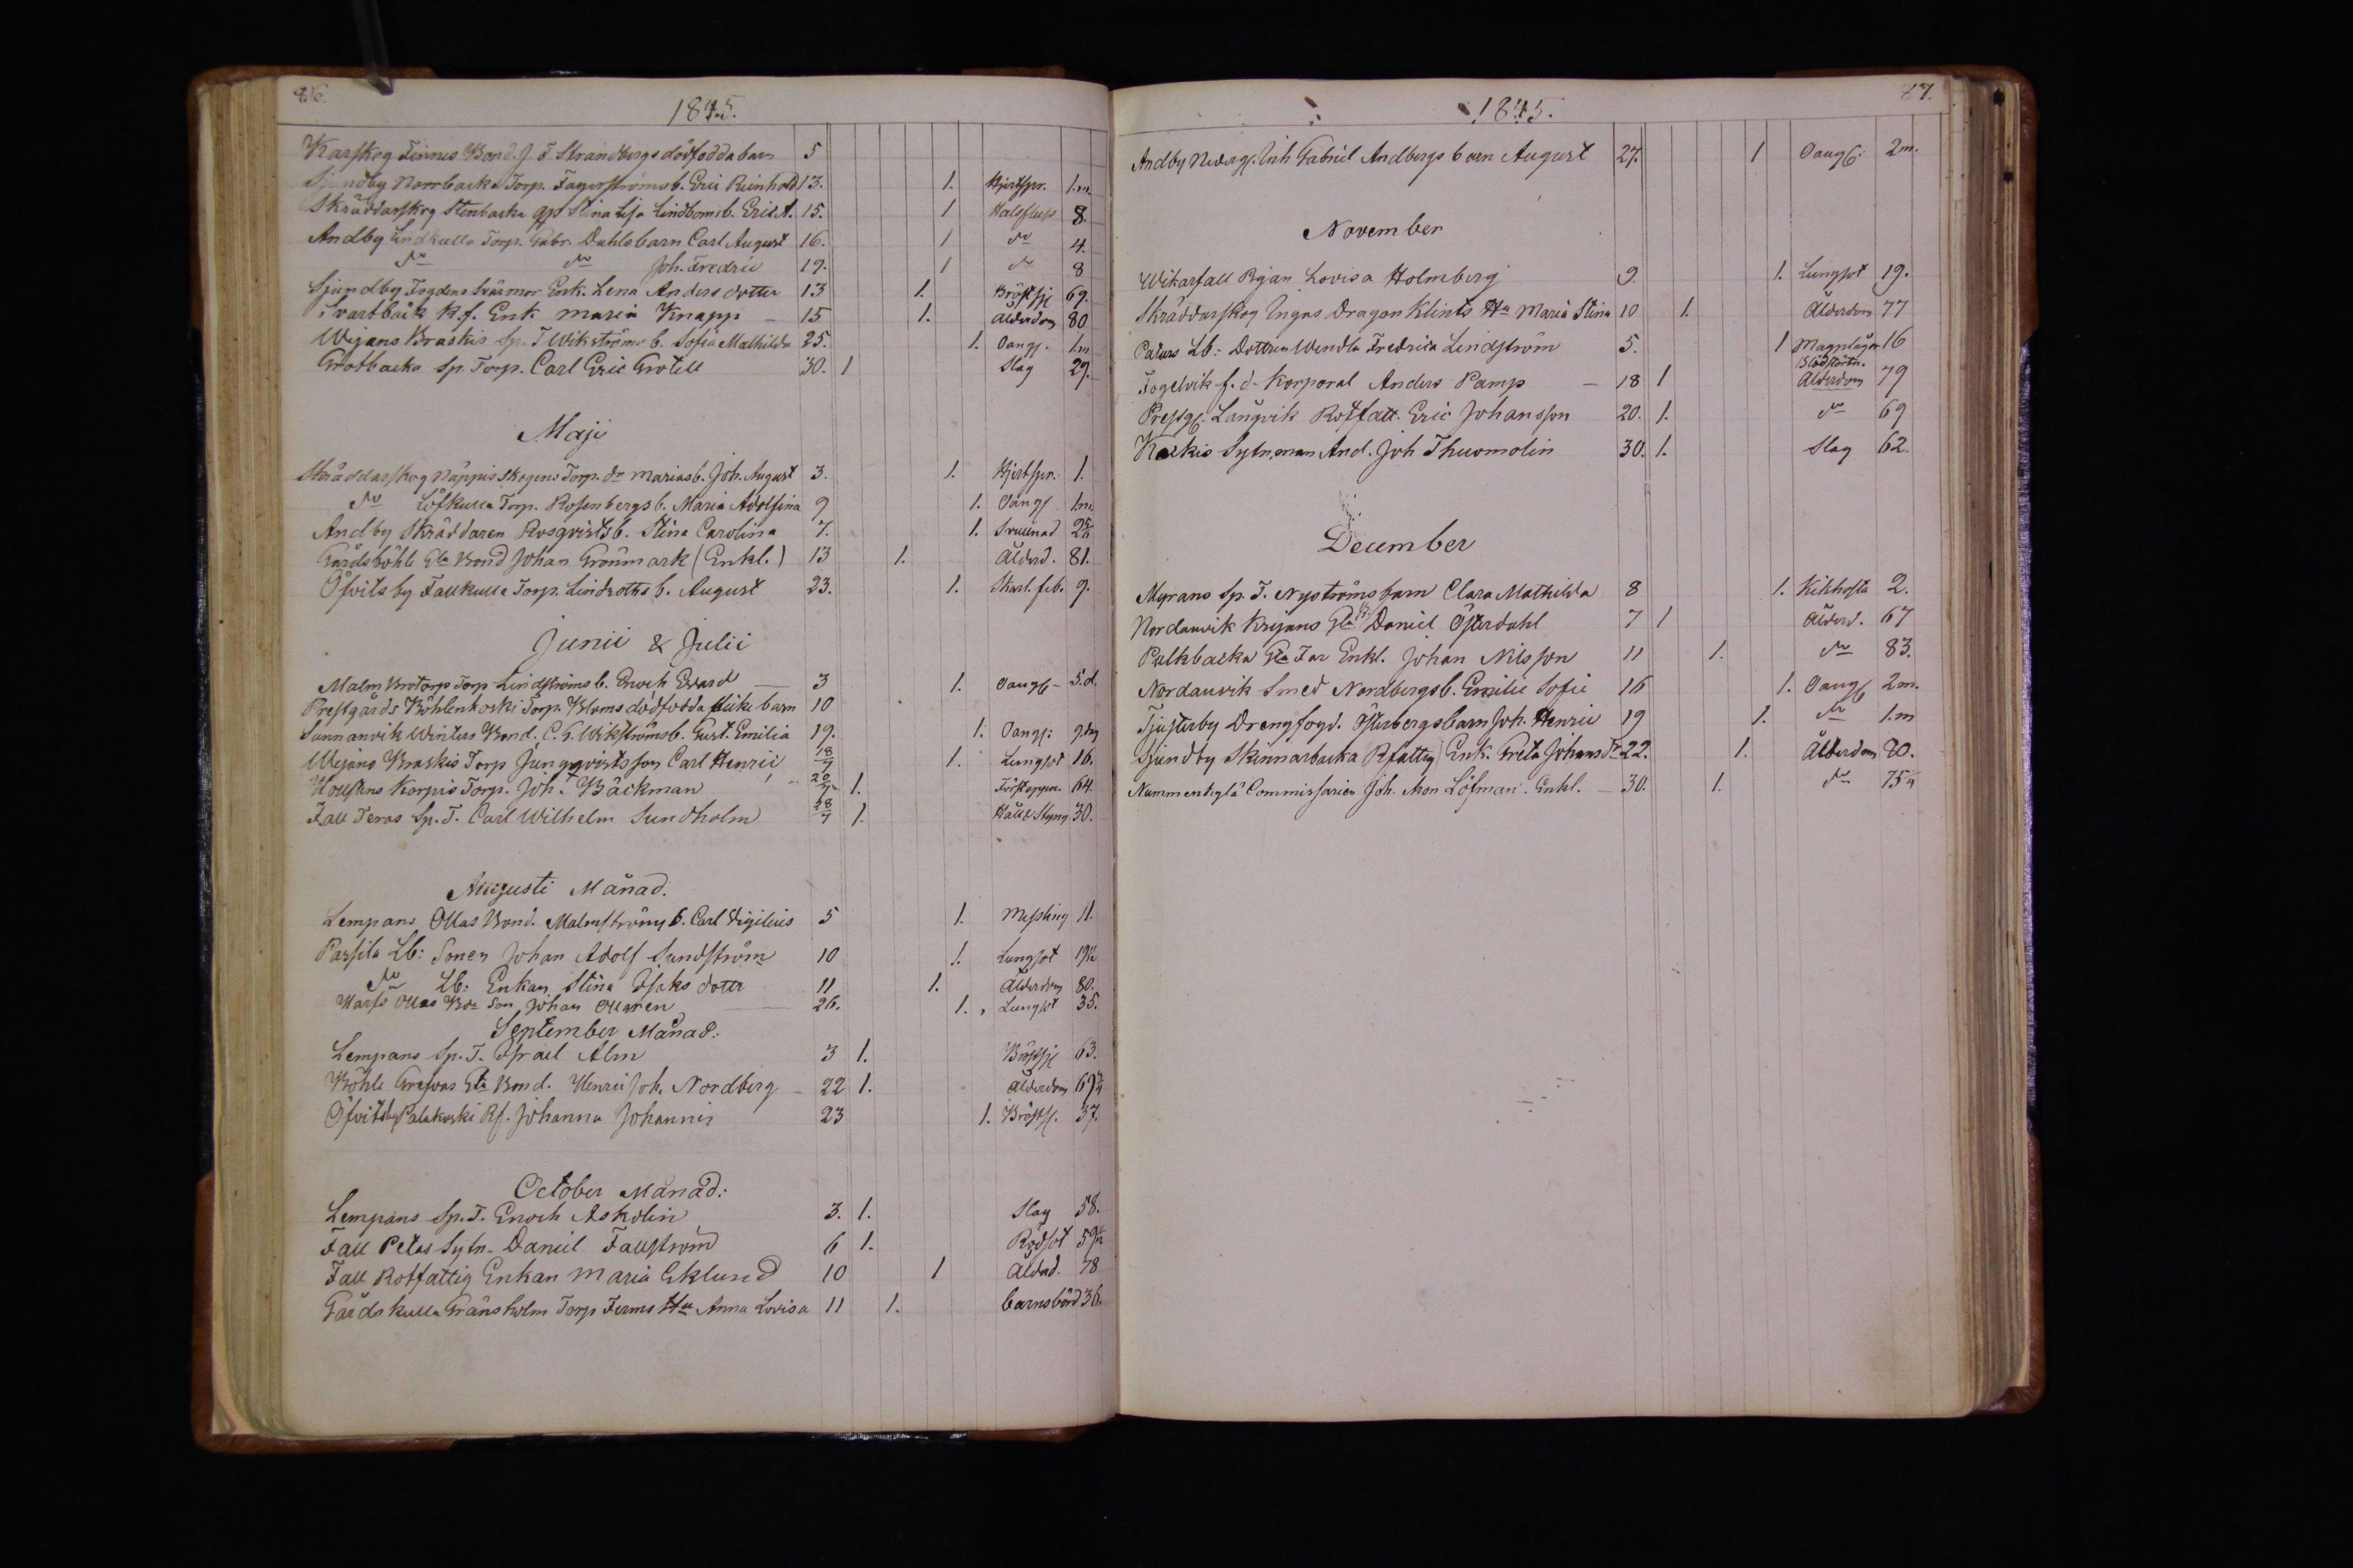 1845.
Karskog Finnes Bond. J. F Strandbergs dödfödda barn 5
Sjundby Norrbacka Torp. Fagerströms b. Eric Reinhold 13. 1. Hjertspr. 1.m.
Skräddarskog Stenbacka Stina Lisa Lindboms b. Eric A. 15. 1 Halsfluss 8.
Andby Lindkulla Torp. Gabr. Dahls barn Carl August 16. 1 do 4.
do do Joh. Fredric 19. 1 do 8
Sjundby Fogdens Svärmor Enk. Lena Anders dotter 13 1. Bröstsj 69.
Svartbäck R.f. Enk. Maria Knapp – 15 1. Ålderdom 80
Wejans Braskis Sp. T Wikströms b. Sofia Mathilda 25. 1. Oangf. 1m
Grotbacka Sp. Torp. Carl Eric Grotell 30. 1 Slag 29.
Maji
Skräddarskog Näppis Skogens Torp. dr Marias b. Joh. August 3. 1. Hjertspr. 1.
do Löfkulla Torp. Rosenbergs b. Maria Adolfina 9 1. Oangf 1m.
Andby Skräddaren Rosqvists b. Stina Carolina 7. 1. Svullnad
Gårdsböhle Gla Bond Johan Grönmark (Enkl.) 13 1. Ålderd. 81.
Öfvitsby Fallkulla Torp. Lindroths b. August 23. 1. Skarl. feb. 9.
Junii & Julii
Malm Brotorp Torp Lindströms b. Enoch Evard — 3 1. Oangf – 5.d.
Prestgårds Böhlenkoski Torp. Bloms dödfödda flicke barn 10
Sunnanvik Winters Bond. C. G. Wikströms b. Gust. Emilia 19. 1. Oangf:
Wejans Braskis Torp Jungqvists son Carl Henric 18/7 1. Lungsot 16.
Korpis Torp. Joh. Bäckman 20/7 1. Förstoppn. 64.
Fall Teras Sp. T. Carl Wilhelm Sundholm 28/7 1. Håll & Styng 30.
Augusti Månad.
Lempans Ollas Bond. Malmströms b. Carl Vigilius 5 1. Messling 11.
Passila Lb: Sonen Johan Adolf Sundström 10 1. Lungsot 19½
do Lb: Enkan Stina Isaks dotter 11 1. Ålderdom 80.
Ollas Bds Son Johan Ollgren — 26. 1. Lungsot 35.
September Månad:
Lempans Sp. T. Israel Alm 3 1. Bröstsj 63.
Böhle Grefvas Gla Bond. Henric Joh. Nordberg – 22 1. Ålderdom 69¾
Öfvitsby Palakoski Rf. Johanna Johannis 23 1. Bröstsj. 37.
October Månad:
Lempans Sp. T. Enoch Askolin 3. 1. Slag 58.
Fall Petas Sytn. Daniel Fallström 6 1. Rödsot 59½
Fall Rotfattig Enkan Maria Eklund 10 1 Ålderd. 78
Gårdskulla Gränsholm Torp Ferms Hu Anna Lovisa 11 1. barnsbörd 36.
1845. 47.
Andby Nederg. Inh Gabriel Andbergs barn August 27. 1 Oangf: 2m.
November
Wikarfall Pigan Lovisa Holmberg 9. 1. Lungsot 19.
Skräddarskog Ingas Dragon Klints Hu Maria Stina 10 1. Ålderdom 77
Paturs Lb: Dottren Wendla Fredrica Lindström 5. 1 Magplågor 16
Blodstörtn.
Fogelvik f. d. Korporal Anders Pamp – 18 1 Ålderdom 79
Prestg. Långvik Rotfatt. Eric Johansson 20. 1. do 69
Kackis Sytn.man And. Joh Thuomolin 30. 1. Slag 62.
December
Myrans Sp. T. Nyströms barn Clara Mathilda 8 1. Kikhosta 2.
Nordanvik Krejans Gla Bd Daniel Österdahl 7 1 Ålderd. 67
Pulkbacka Gla Far Enkl. Johan Nilsson 11 1. do 83.
Nordanvik Smed Nordbergs b. Emilie Sofie 16 1. Oangf 2m.
Tjusterby Drengfogd. Österbergs barn Joh. Henric 19 1. do 1.m
Sjundby Skinnarbacka Rfattig Enk. Greta Johans Dr 22. 1. Ålderdom 80.
Nummenkylä Commissarien Joh. Mon Löfman. Enkl. – 30. 1. do 75¼